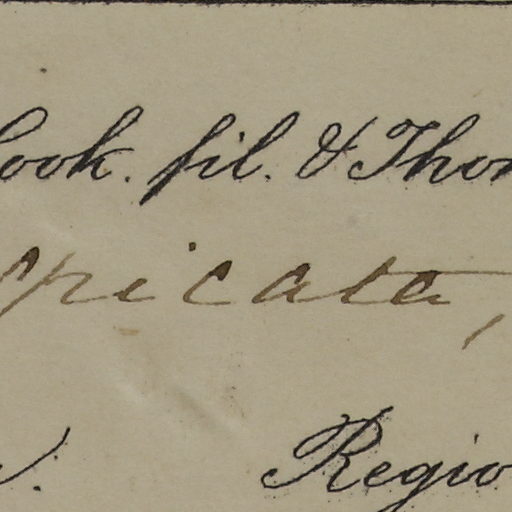 Hook. fil. & Thom
spicata,
Regio